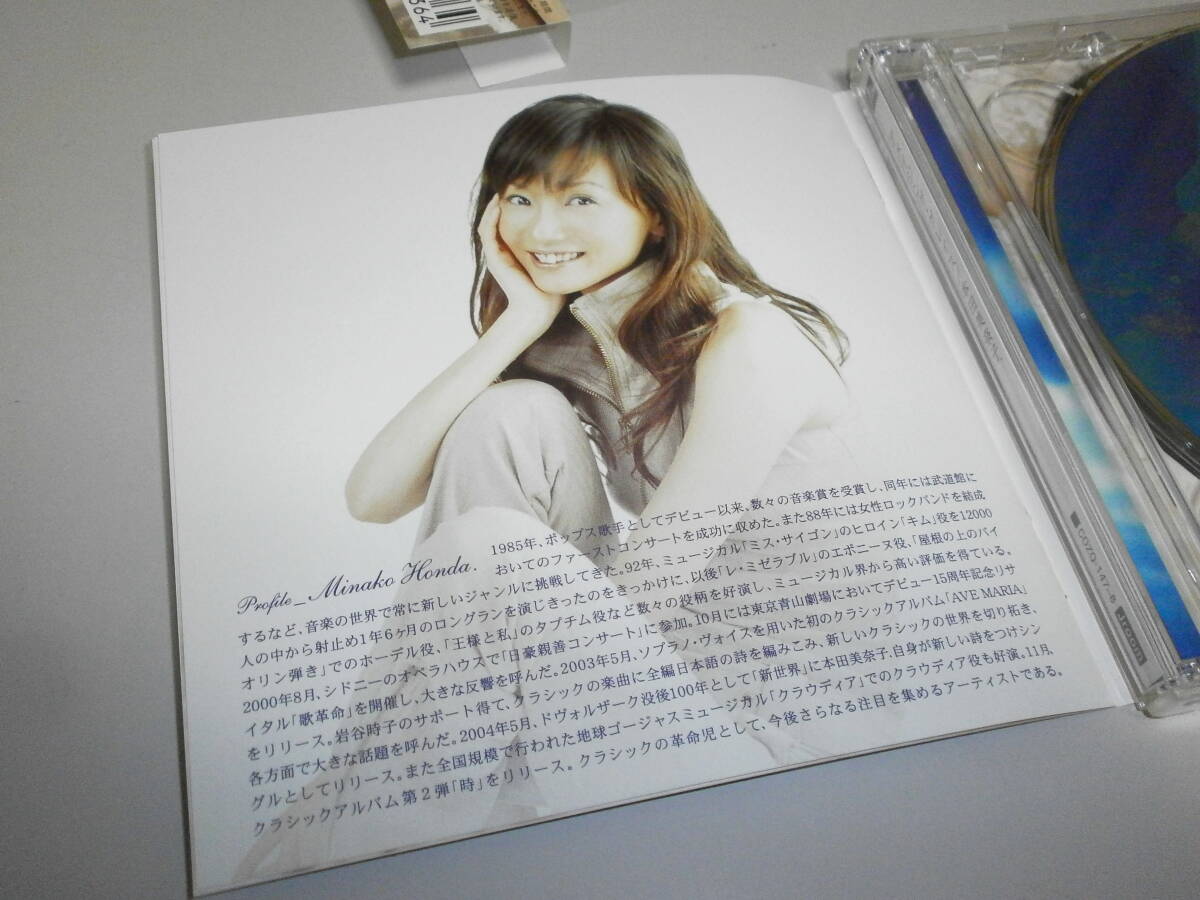 364
Profile_Minako Honda.
1985年、ポップス歌手としてデビュー以来、数々の音楽賞を受賞し、同年には武道館に
おいてのファーストコンサートを成功に収めた。また88年には女性ロックバンドを結成
するなど、音楽の世界で常に新しいジャンルに挑戦してきた。92年、ミュージカル「ミス・サイゴン」のヒロイン「キム」役を12000
人の中から射止め1年6ヶ月のロングランを演じきったのをきっかけに、以後「レ・ミゼラブル」のエポニーヌ役、「屋根の上のバイ
オリン弾き」でのホーデル役、「王様と私」のタプチム役など数々の役柄を好演し、ミュージカル界から高い評価を得ている。
2000年8月、シドニーのオペラハウスで「日豪親善コンサート」に参加。10月には東京青山劇場においてデビュー15周年記念リサ
イタル「歌革命」を開催し、大きな反響を呼んだ。2003年5月、ソプラノ・ヴォイスを用いた初のクラシックアルバム「AVE MARIA」
をリリース。岩谷時子のサポート得て、クラシックの楽曲に全編日本語の詩を編みこみ、新しいクラシックの世界を切り拓き、
各方面で大きな話題を呼んだ。2004年5月、ドヴォルザーク没後100年として「新世界」に本田美奈子.自身が新しい詩をつけシン
グルとしてリリース。また全国規模で行われた地球ゴージャスミュージカル「クラウディア」でのクラウディア役も好演。11月、
クラシックアルバム第2弾「時」をリリース。クラシックの革命児として、今後さらなる注目を集めるアーティストである。
COZQ-147-8